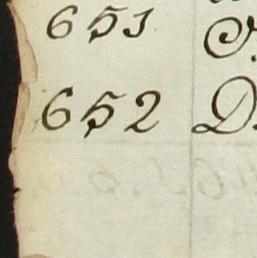 651
652 D